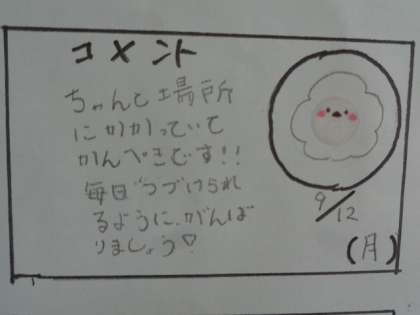 コメント
ちゃんと場所
にかかっていて
かんぺきです!!
毎日つづけられ
るように、がんば
りましょう♡
9/12
(月)